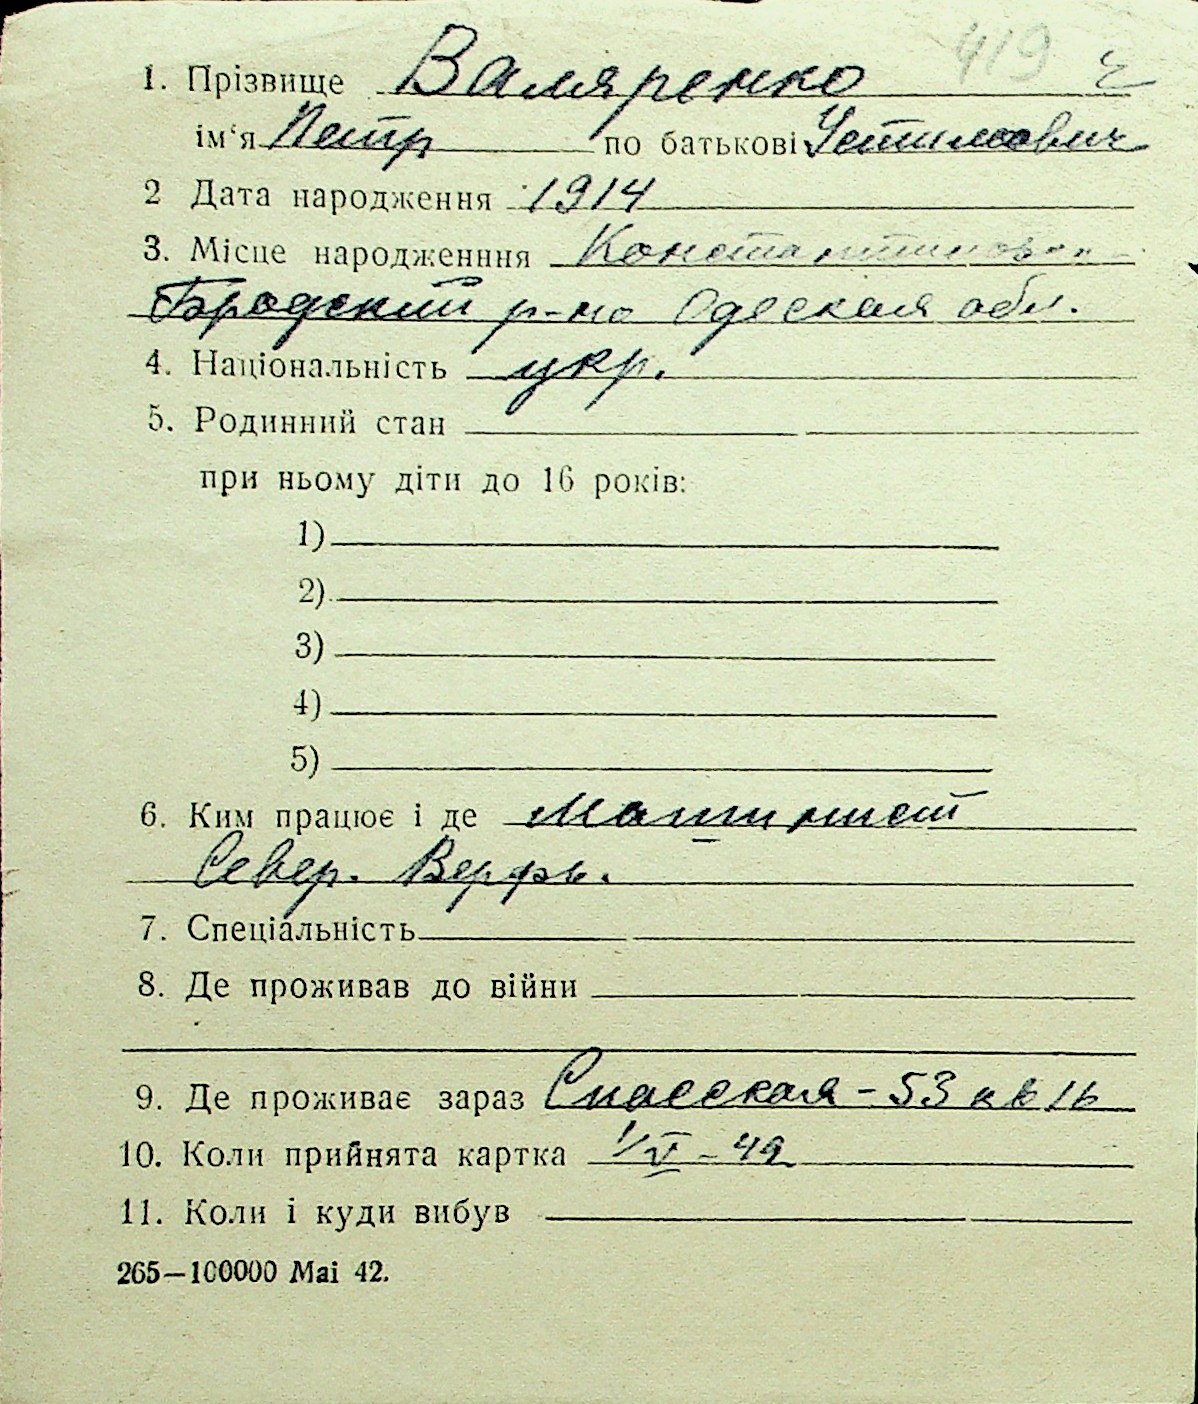 419
1. Прізвище Валяренко
ім‘я Петр по батькові Устимович
2 Дата народження 1914
3. Місце народженння Константиновка
Бродский р-на Одеская обл.
4. Національність укр.
5. Родинний стан
при ньому діти до 16 років:
1)
2)
3)
4)
5)
6. Ким працює і де Машинист
Север. Верфь.
7. Спеціальність
8. Де проживав до війни
9. Де проживає зараз Спасская - 53 кв 16
10. Коли прийнята картка 1/V - 42
11. Коли і куди вибув
265—100000 Mai 42.